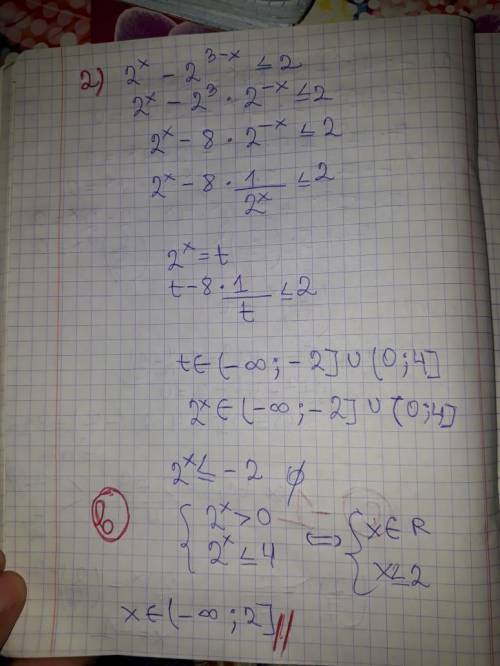 2) 2^x - 2^{3-x} ≤ 2
2^x - 2^3 · 2^{-x} ≤ 2
2^x - 8 · 2^{-x} ≤ 2
2^x - 8 · 1/2^x ≤ 2
2^x = t
t - 8 · 1/t ≤ 2
t ∈ (-∞ ; -2] ∪ (0 ; 4]
2^x ∈ (-∞ ; -2] ∪ (0 ; 4]
2^x ≤ -2 ∅
{ 2^x > 0 ⇔ { x ∈ R
2^x ≤ 4 x ≤ 2
x ∈ (-∞ ; 2]